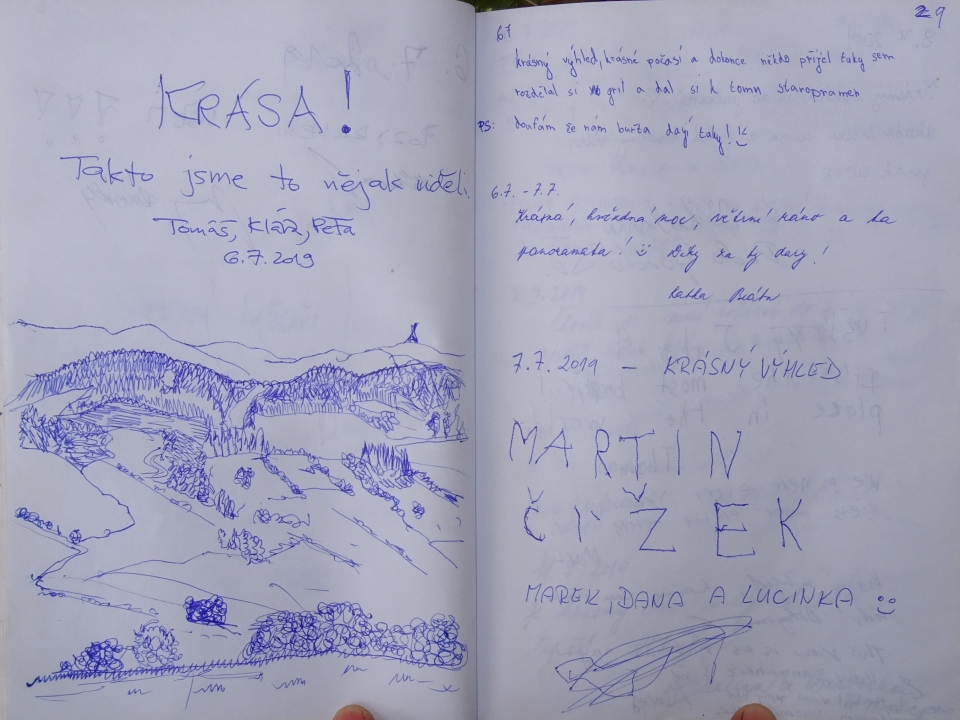 KRÁSA!
Takto jsme to nějak viděli.
Tomáš, Klára, Peťa
6.7.2019
29
6.7
krásný výhled, krásné počasí a dokonce někdo přijel taky sem
rozdělal si gril a dal si k tomu staropramen
PS: doufám že nám buřta dají taky!
6.7. - 7.7.
Krásná, hvězdná noc, větrné ráno a ta
panoramata! Díky za ty dary!
Katka
7.7.2019 - KRÁSNÝ VÝHLED
MARTIN
ČÍŽEK
MAREK, DANA A LUCINKA